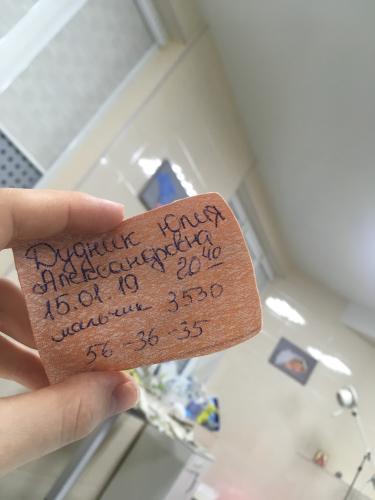 Дудник Юлия
Александровна
15.01.19 20 40
мальчик 3530
56-36-35